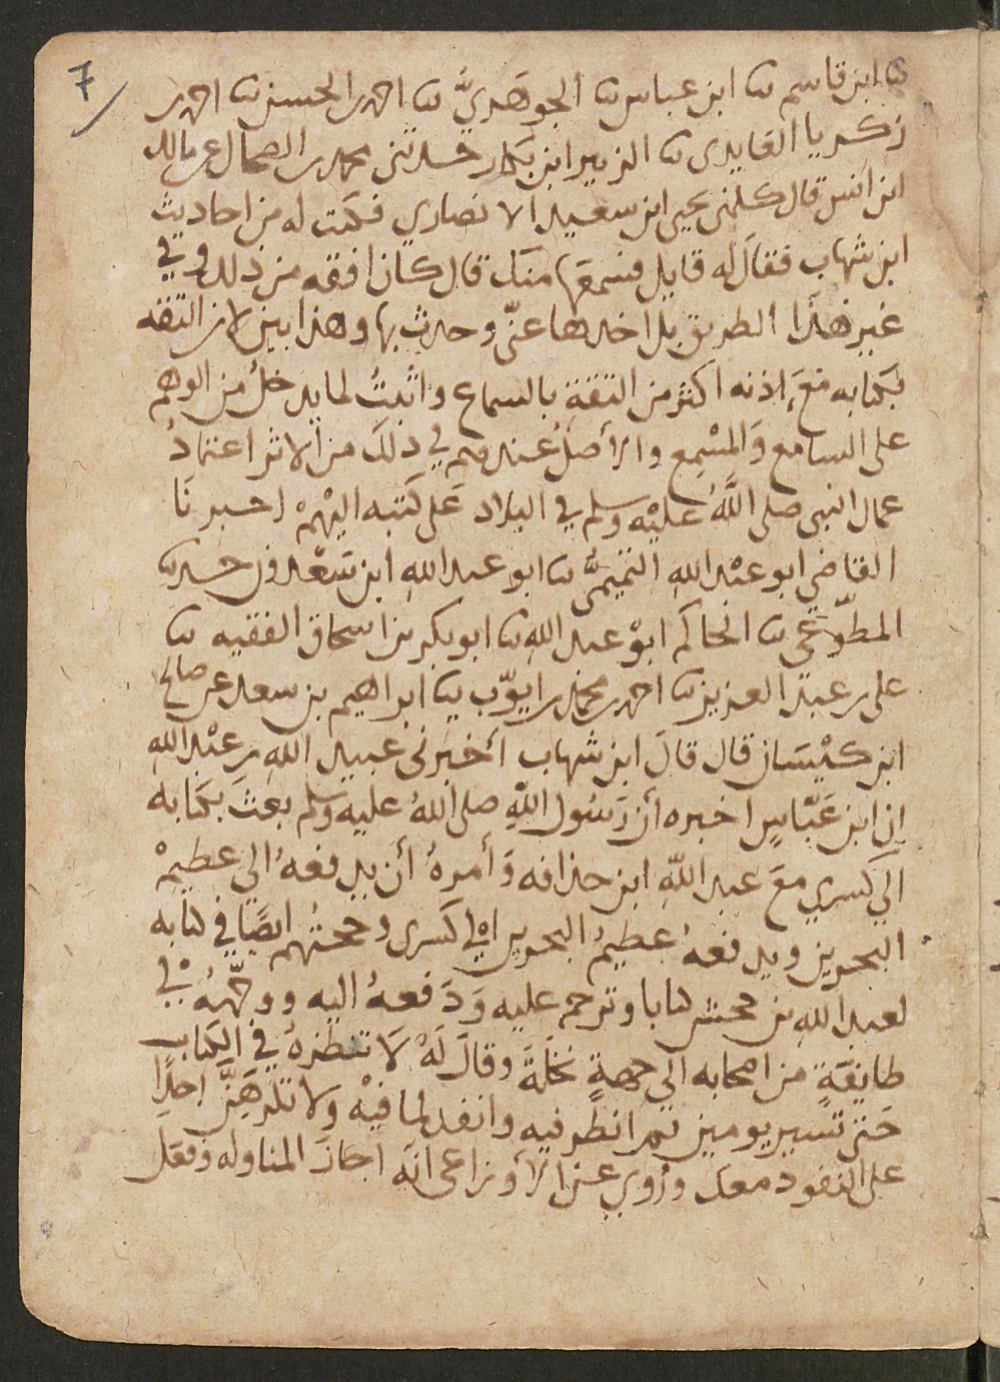 7
نا ابن قاسم نا ابن عباس نا الجوهريّ نا احمد الحسن نا احمد بن
زكريا العايدي نا الزبير ابن بكار حدثني محمد بن الضحاك عن مالك
ابن انس قال كلمني يحيى ابن سعيد الانصاري فكتبت له من احاديث
ابن شهاب فقال له قايل فسمعها منك قال كان افقه من ذلك وفي
غير هذا الطريق بل اخذها عنّي وحدث بها وهذا بين لان الثقة
بكتابه مع اذنه اكثر من الثقة بالسماع واثبتُ لما يدخلُ من الوهم
على السامع وَالمسْمِع والأصلُ عندهم في ذلكَ من الاثر اعتمادُ
عمال النبي صلى اللهُ عليْه وسلم في البلاد عَلى كتبه اليْهمْ اخبرنَا
القاضي ابو عبْد الله التميميّ نا ابو عبد الله ابن سَعْدون حدثنا
المطّوّعي نا الحاكم ابوْ عبد الله نا ابو بكر بن اسحاق الفقيه نا
على بن عبْد العزيز نا احمد بن محمد بن ايوّب نا ابراهيم بن سعد عن صالح
ابن كيْسَان قال قالَ ابن شهاب أخبرني عبيد الله بن عبْد الله
ان ابن عَبّاسٍ اخبره أن رَسُول اللهِ صلى اللهُ عليه وسلم بعثَ بكتابه
الي كسري معَ عبد اللهِ ابن حذافه وَأمرهُ أن يدفعهُ الي عظيمْ
البحرين ويدفعهُ عظيمُ البحرين الي كسرى وحجتُهم ايضًا في كتابه
لعبد الله بن جحش كتابا وترحم عليه وَدَفعهُ اليه ووجّههُ في
طايفةٍ من اصحابه الى جهةِ نخلَةَ وقالَ لَهْ لَا تنظرهُ في الكتاب
حَتى تسير يومين ثم انظر فيه وانفد لما فيْه ولا تكرهَنَّ احدًا
على النفود معك ورُوي عن الأوزاعى انَه اجازَ المناوله وَفعَل